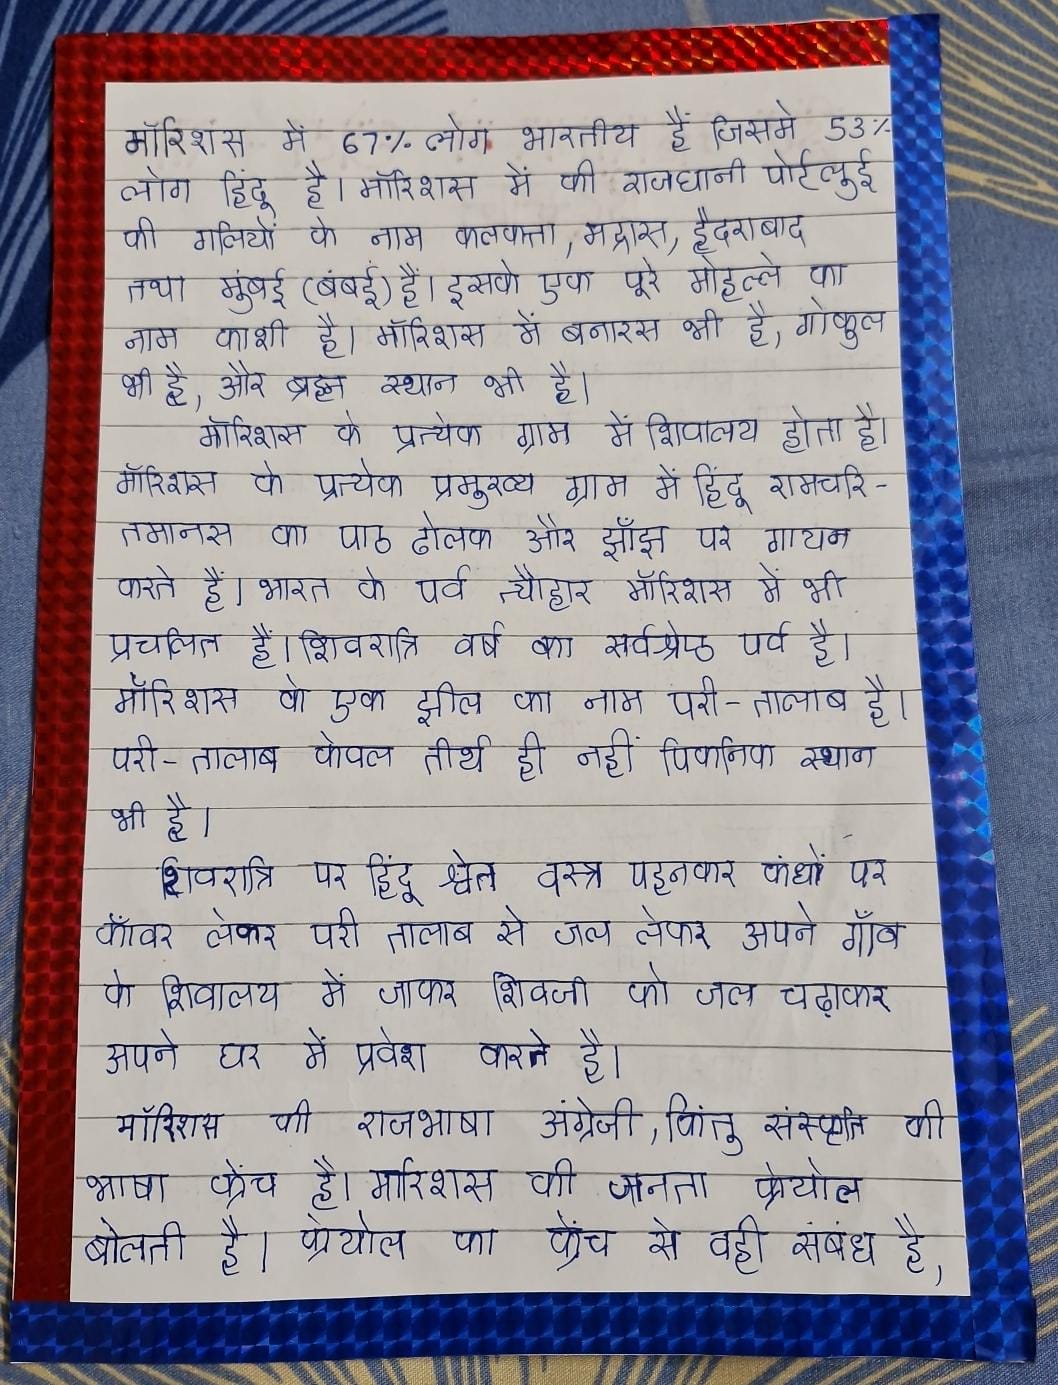 मॉरिशस में 67% लोग भारतीय हैं जिसमे 53%
लोग हिंदू है। मॉरिशस में की राजधानी पोर्टलुई
की गलियों के नाम कलकत्ता, मद्रास, हैदराबाद
तथा मुंबई (बंबई) हैं। इसके एक पूरे मोहल्ले का
नाम काशी है। मॉरिशस में बनारस भी है, गोकुल
भी है, और ब्रह्म स्थान भी है।
मॉरिशस के प्रत्येक ग्राम में शिवालय होता है।
मॉरिशस के प्रत्येक प्रमुख्य ग्राम में हिंदू रामचरि-
तमानस का पाठ ढोलक और झाँझ पर गायन
करते हैं। भारत के पर्व त्यौहार मॉरिशस में भी
प्रचलित हैं। शिवरात्रि वर्ष का सर्वश्रेष्ठ पर्व है।
मॉरिशस के एक झील का नाम परी-तालाब है।
परी-तालाब केवल तीर्थ ही नहीं पिकनिक स्थान
भी है।
शिवरात्रि पर हिंदू श्वेत वस्त्र पहनकर कंधों पर
काँवर लेकर परी तालाब से जल लेकर अपने गाँव
के शिवालय में जाकर शिवजी को जल चढ़ाकर
अपने घर में प्रवेश करते है।
मॉरिशस की राजभाषा अंग्रेजी, किंतु संस्कृति की
भाषा फ्रेंच है। मॉरिशस की जनता क्रेयोल
बोलती है। क्रेयोल का फ्रेंच से वही संबंध है,